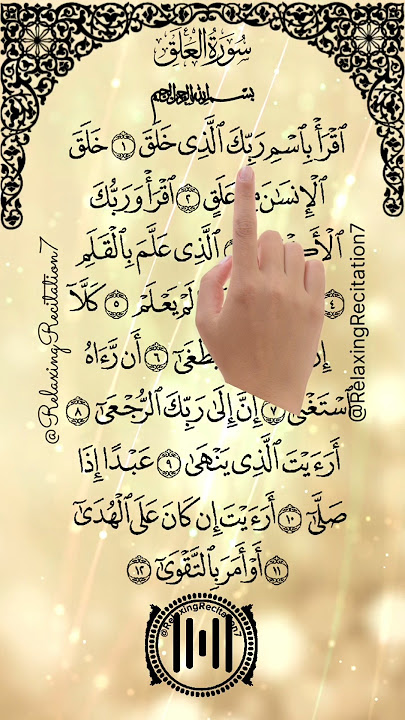 سُورَةُ الْعَلَقِ
بِسْمِ اللَّهِ الرَّحْمَٰنِ الرَّحِيمِ
ٱقْرَأْ بِٱسْمِ رَبِّكَ ٱلَّذِى خَلَقَ ١ خَلَقَ
ٱلْإِنسَٰنَ عَلَقٍ ٢ ٱقْرَأْ وَرَبُّكَ
ٱلَّذِى عَلَّمَ بِٱلْقَلَمِ
٤ لَمْ يَعْلَمْ ٥ كَلَّآ
٦ أَن رَّءَاهُ
ٱسْتَغْنَىٰٓ ٧ إِنَّ إِلَىٰ رَبِّكَ ٱلرُّجْعَىٰٓ ٨
أَرَءَيْتَ ٱلَّذِى يَنْهَىٰ ٩ عَبْدًا إِذَا
صَلَّىٰٓ ١٠ أَرَءَيْتَ إِن كَانَ عَلَى ٱلْهُدَىٰٓ
١١ أَوْ أَمَرَ بِٱلتَّقْوَىٰٓ ١٢
@RelaxingRecitation7
@RelaxingRecitation7
@RelaxingRecitation7